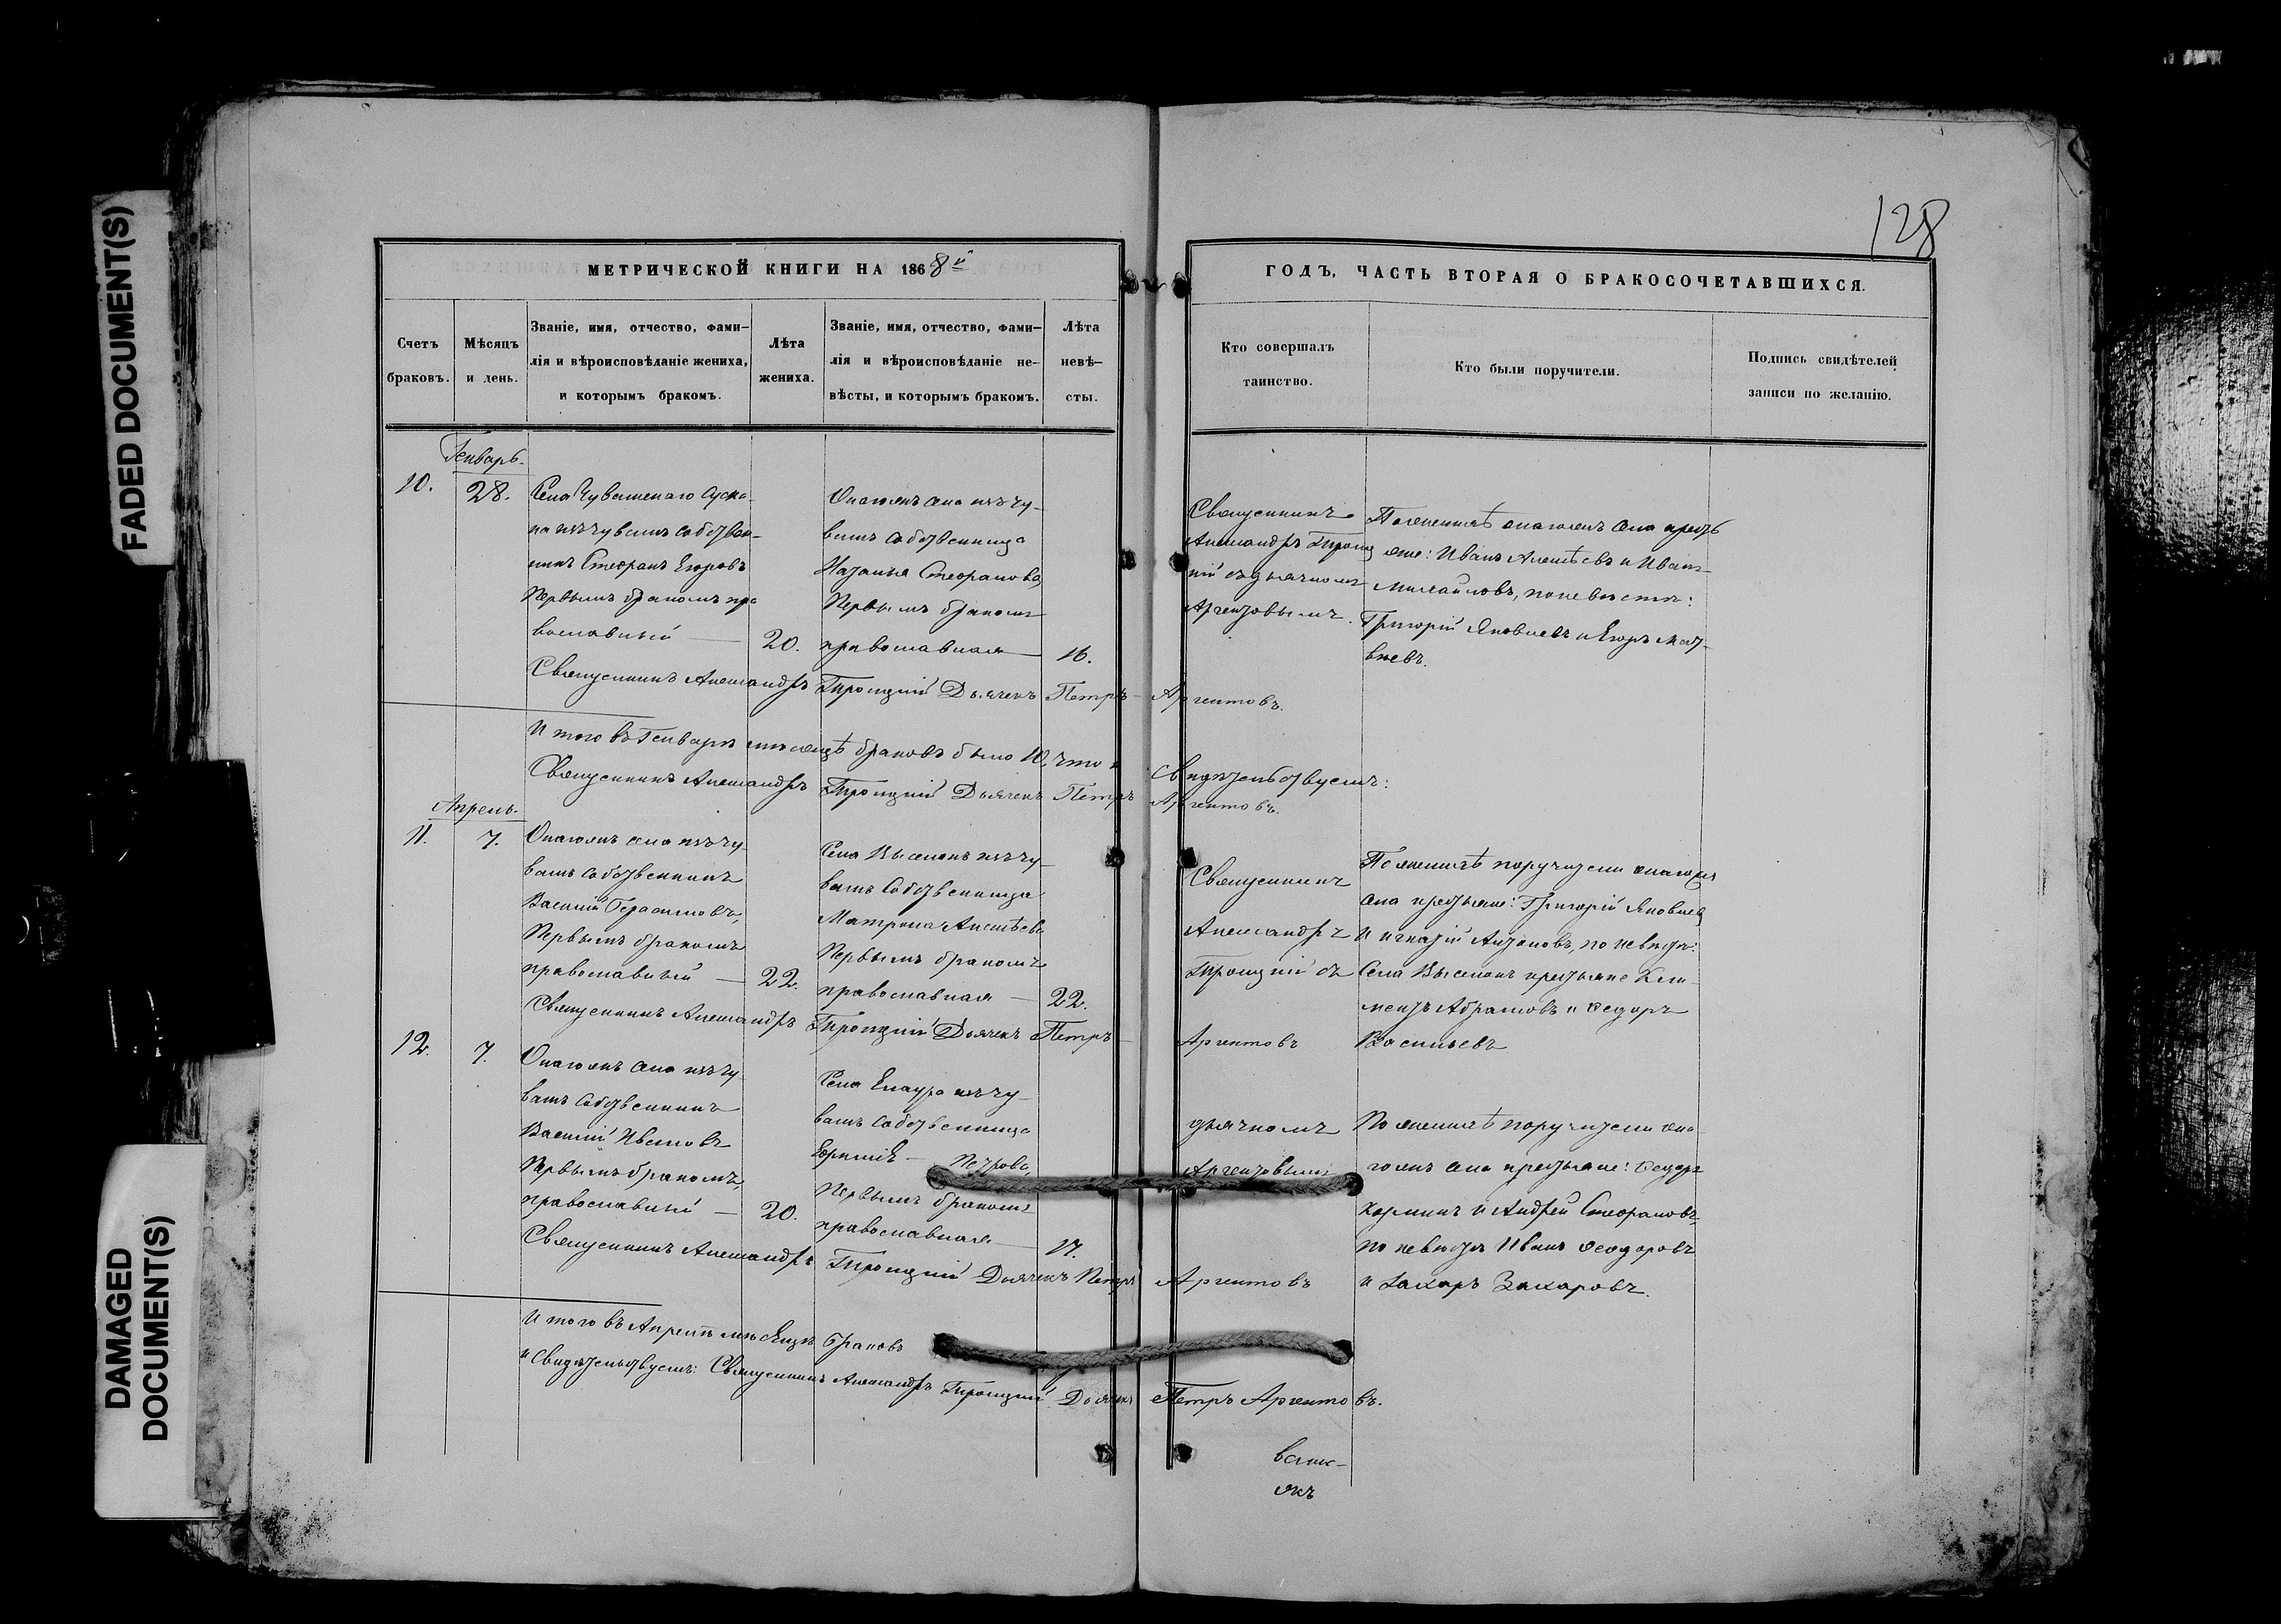 FADED DOCUMENT(S)
DAMAGED
DOCUMENT(S)
128
МЕТРИЧЕСКОЙ КНИГИ НА 1868й
Счетъ
браковъ.
Мѣсяцъ
и день.
Званіе, имя, отчество, фами-
лія и вѣроисповѣданіе жениха,
и которымъ бракомъ.
Лѣта
жениха.
Званіе, имя, отчество, фами-
лія и вѣроисповѣданіе не-
вѣсты, и которымъ бракомъ.
Лѣта
невѣ-
сты.
ГОДЪ, ЧАСТЬ ВТОРАЯ О БРАКОСОЧЕТАВШИХСЯ.
Кто совершалъ
таинство.
Кто были поручители.
Подпись свидѣтелей
записи по желанію.
Генварь.
10.
28.
Села Чувашскаго Суска-
на изъ чувашъ собствен-
никъ Стефанъ Егоровъ
первымъ бракомъ пра
вославный —
20.
Онагожъ села изъ чу-
вашъ собственница
Наталья Стефанова,
первымъ бракомъ
православная —
16.
Священникъ
Александръ Троиц
кій съ дьячкомъ
Аргентовымъ.
По женихѣ онагожъ села кресть
яне: Иванъ Алексѣевъ и Иванъ
Михайловъ, по невѣстѣ:
Григорій Яковлевъ и Егоръ Мат-
вѣевъ.
Священникъ Александръ Троицкій Дьячекъ Петръ Аргентовъ.
Итого въ Генварѣ мѣсяцѣ браковъ было 10, что и свидѣтельствуемъ:
Священникъ Александръ Троицкій Дьячекъ Петръ Аргентовъ.
Апрель.
11.
7.
Онагожъ села изъ чу-
вашъ собственникъ
Василій Герасимовъ,
первымъ бракомъ
православный —
22.
Села изъ чу-
вашъ собственница
Матрона Алексѣева
первымъ бракомъ
православная —
22.
Священникъ
Александръ
Троицкій съ
По женихѣ поручители онагожъ
села крестьяне: Григорій Яковлевъ
и Игнатій Антоновъ, по невѣстѣ:
села крестьяне Кли-
ментъ Абрамовъ и Ѳедоръ
Васильевъ
Священникъ Александръ Троицкій Дьячекъ Петръ Аргентовъ
12.
7.
Онагожъ села изъ чу-
вашъ собственникъ
Василій Ивановъ
первымъ бракомъ,
православный —
20.
Села Енаура изъ чу-
вашъ собственница
Петрова,
первымъ бракомъ
православная —
17.
дьячкомъ
Аргентовымъ
По женихѣ поручители она-
гожъ села крестьяне: Ѳедоръ
и Андрей Стефановъ,
по невѣстѣ Иванъ Ѳеодоровъ
и Захаръ Захаровъ.
Священникъ Александръ Троицкій Дьячекъ Петръ Аргентовъ
Итого въ Апрелѣ мѣсяцѣ браковъ
и свидѣтельствуемъ: Священникъ Александръ Троицкій Дьячекъ Петръ Аргентовъ.